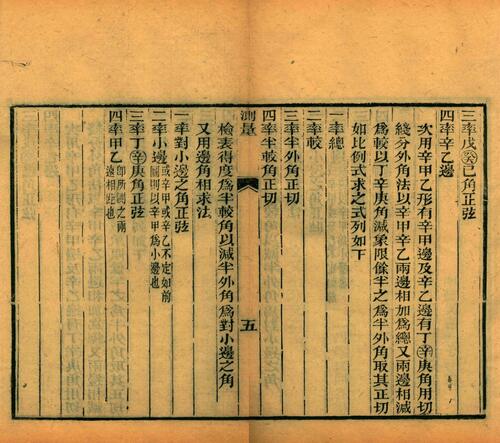 三率戊癸己角正弦
四率辛乙邊
次用辛甲乙形有辛甲邊及辛乙邊有丁辛庚角用切
綫分外角法以辛甲辛乙兩邊相加爲總又兩邊相減
爲較以丁辛庚角減象限餘半之爲半外角取其正切
如比例式求之式列如下
一率總
二率較
三率半外角正切
四率半較角正切
測量
五
檢表得度爲半較角以減半外角爲對小邊之角
又用邊角相求法
一率對小邊之角正弦
二率小邊 辛甲或辛乙不定如前圖則以辛甲爲小邊也
三率丁辛庚角正弦
四率甲乙 即所測之兩遠相距也